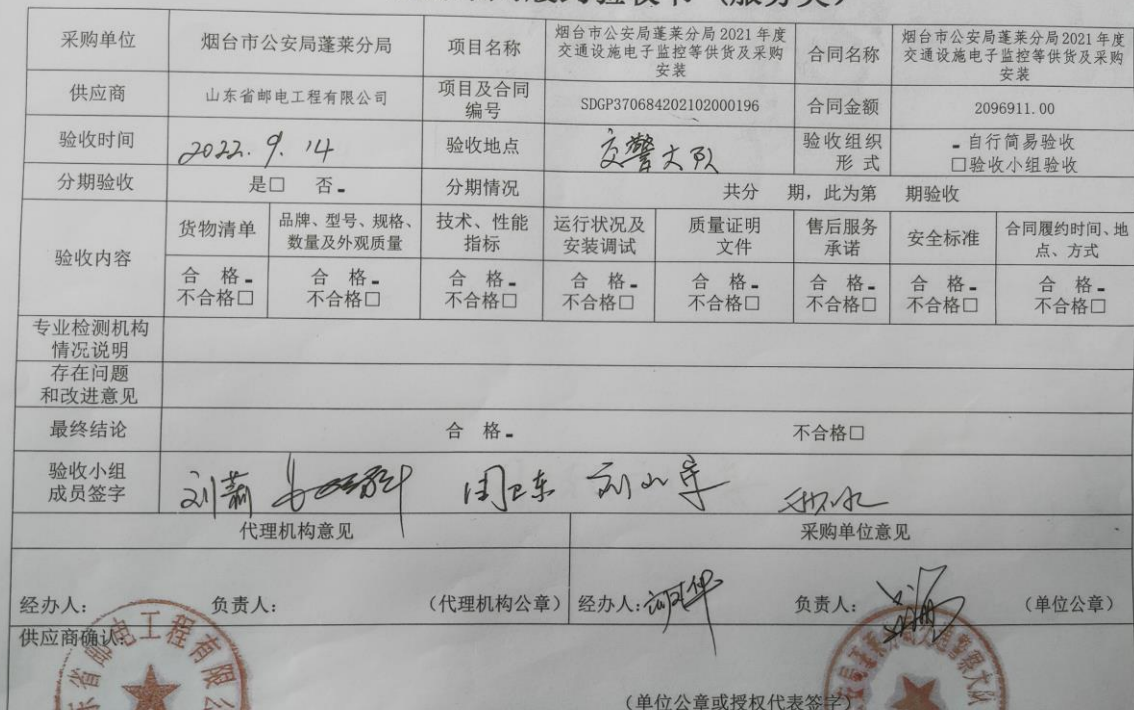 采购单位 烟台市公安局蓬莱分局 项目名称 烟台市公安局蓬莱分局2021年度交通设施电子监控等供货及采购安装 合同名称 烟台市公安局蓬莱分局2021年度交通设施电子监控等供货及采购安装
供应商 山东省邮电工程有限公司 项目及合同编号 SDGP370684202102000196 合同金额 2096911.00
验收时间 2022.9.14 验收地点 交警大队 验收组织形式 自行简易验收 □验收小组验收
分期验收 是□ 否 分期情况 共分 期，此为第 期验收
验收内容
货物清单 品牌、型号、规格、数量及外观质量 技术、性能指标 运行状况及安装调试 质量证明文件 售后服务承诺 安全标准 合同履约时间、地点、方式
合格 合格 合格 合格 合格 合格 合格 合格
不合格□ 不合格□ 不合格□ 不合格□ 不合格□ 不合格□ 不合格□ 不合格□
专业检测机构情况说明
存在问题和改进意见
最终结论 合格 不合格□
验收小组成员签字
代理机构意见 采购单位意见
经办人： 负责人： （代理机构公章） 经办人： 负责人： （单位公章）
供应商确认：
省邮电工程有限公
（单位公章或授权代表签字）